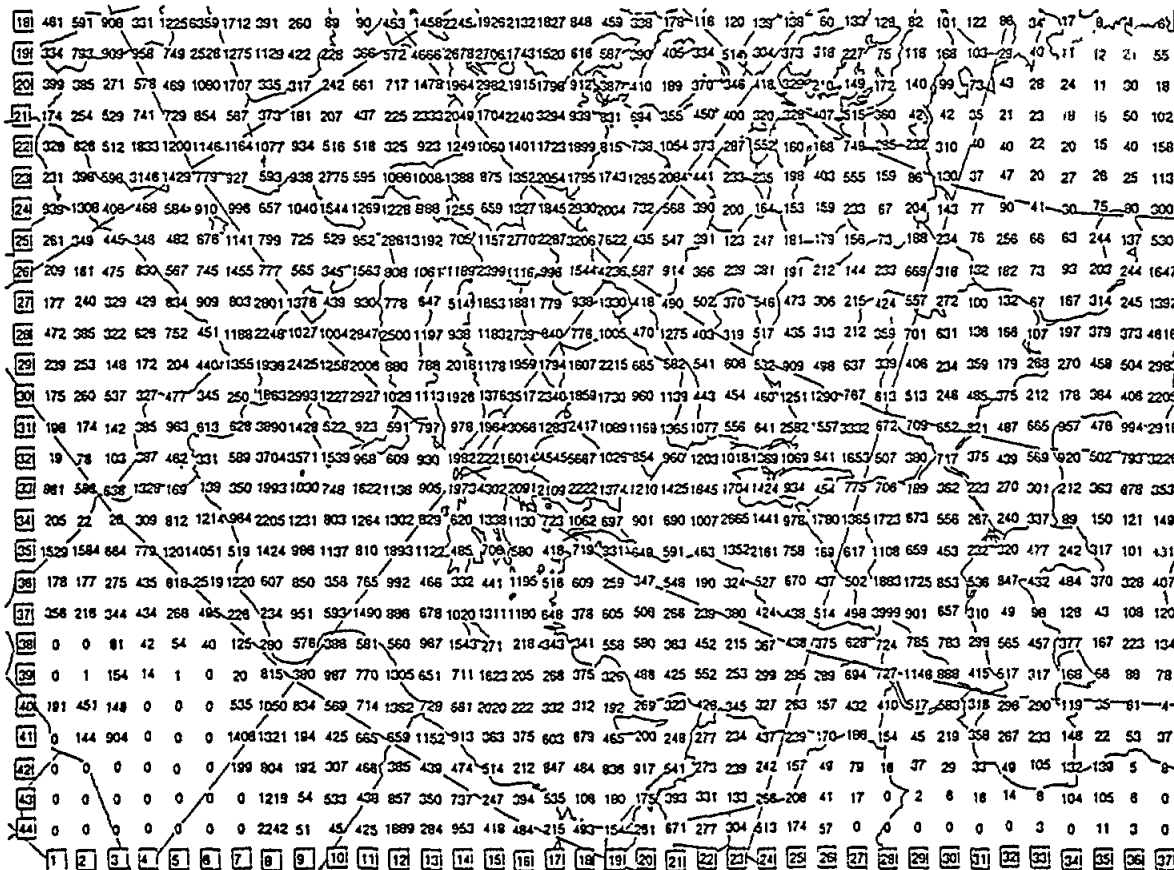 18 461 591 908 331 1225 6359 1712 391 260 89 90 453 1458 2245 1926 2132 1827 848 459 338 178 116 120 139 138 60 133 129 82 101 122 86 34 17
19 334 793 909 958 749 2526 1275 1129 422 228 366 572 4666 2678 2706 1743 1520 616 587 390 405 334 514 304 373 318 227 75 118 168 103 29 40 11 12 21 55
20 399 385 271 578 469 1080 1707 335 317 242 661 717 1478 1964 2982 1915 1798 912 387 410 189 370 346 418 329 210 149 172 140 99 73 43 28 24 11 30 18
21 174 254 529 741 729 854 587 373 181 207 437 225 2333 2049 1704 2240 3294 939 831 694 355 450 400 320 328 407 515 360 42 42 35 21 23 18 15 50 102
22 328 828 512 1833 1200 1146 1164 1077 934 516 518 325 923 1249 1060 1401 1723 1899 815 738 1054 373 287 552 160 168 748 285 232 310 40 40 22 20 15 40 158
23 231 398 598 3146 1429 779 927 593 938 2775 595 1086 1008 1388 875 1352 2054 1795 1743 1285 2084 441 233 235 198 403 555 159 86 130 37 47 20 27 26 25 113
24 939 1308 408 468 584 910 996 657 1040 1544 1269 1228 888 1255 659 1327 1845 2930 2004 732 568 390 200 164 153 159 233 67 204 143 77 90 41 30 75 80 300
25 261 349 445 348 482 676 1141 799 725 529 952 2861 3192 705 1157 2770 2287 3206 7622 435 547 391 123 247 181 179 156 73 188 234 76 256 66 63 244 137 530
26 209 181 475 830 567 745 1455 777 565 345 1563 808 1061 1189 2399 1116 996 1544 4236 587 914 366 239 381 191 212 144 233 669 316 132 182 73 93 203 244 1647
27 177 240 329 429 834 909 803 2801 1378 439 930 778 647 514 1853 1881 779 938 1330 418 490 502 370 546 473 306 215 424 557 272 100 132 67 167 314 245 1392
28 472 385 322 628 752 451 1188 2248 1027 1004 2847 2500 1197 938 1183 2739 840 776 1005 470 1275 403 319 517 435 313 212 359 701 631 136 168 107 197 379 373 4618
29 239 253 148 172 204 440 1355 1936 2425 1258 2006 880 788 2018 1178 1959 1794 1607 2215 685 582 541 608 532 909 498 637 339 406 234 359 179 268 270 458 504 298
30 175 260 537 327 477 345 250 1863 2993 1227 2927 1029 1113 1926 1376 3517 2340 1859 1730 960 1139 443 454 460 1251 1290 767 813 513 248 485 375 212 178 384 406 220
31 198 174 142 385 963 613 628 3890 1428 522 923 591 797 978 1964 3066 1283 2417 1089 1169 1365 1077 556 641 2582 1557 3332 672 709 652 821 487 665 957 476 994 291
32 19 78 103 387 462 331 589 3704 3571 1539 968 609 930 1992 2221 6014 4545 5667 1026 854 960 1203 1018 1389 1069 941 1653 507 380 717 375 439 569 920 502 793 322
33 881 586 638 1328 169 139 350 1993 1030 748 1622 1138 905 1973 4302 2091 2109 2222 1374 1210 1425 1845 1704 1424 934 454 775 706 189 362 223 270 301 212 363 878 353
34 205 22 26 309 812 1214 964 2205 1231 803 1264 1302 829 620 1338 1130 723 1062 697 901 690 1007 2665 1441 978 1780 1365 1723 673 556 267 240 337 89 150 121 149
35 1529 1584 664 779 1201 4051 519 1424 986 1137 810 1893 1122 485 708 580 418 719 331 648 591 463 1352 2161 758 169 617 1108 659 453 232 320 477 242 317 101 431
36 178 177 275 435 818 2519 1220 607 850 358 765 992 466 332 441 1195 516 609 259 347 548 190 324 527 670 437 502 1883 1725 853 536 847 432 484 370 328 407
37 356 216 344 434 268 495 226 234 951 593 1490 886 678 1020 1311 1180 648 378 605 508 266 239 380 424 438 514 498 3999 901 657 310 49 98 128 43 108 120
38 0 0 81 42 54 40 125 280 576 388 581 560 967 1543 271 218 4343 341 558 580 363 452 215 367 438 375 628 724 785 783 298 565 457 377 167 223 134
39 0 1 154 14 1 0 20 815 380 987 770 1305 651 711 1623 205 268 375 326 488 425 552 253 299 295 289 694 727 1146 888 415 517 317 168 68 88 78
40 191 451 148 0 0 0 535 1050 834 569 714 1362 728 681 2020 222 332 312 192 269 323 428 345 327 263 157 432 410 517 583 318 296 290 119 35 81
41 0 144 904 0 0 0 1408 1321 194 425 665 659 1152 913 363 375 603 679 465 200 248 277 234 437 239 170 186 154 45 219 358 267 233 148 22 53 37
42 0 0 0 0 0 0 199 804 192 307 466 385 439 474 514 212 847 484 836 917 541 273 239 242 157 49 79 16 37 29 33 49 105 132 139 5
43 0 0 0 0 0 0 0 1219 54 533 438 857 350 737 247 394 535 108 180 175 393 331 133 256 208 41 17 0 2 6 16 14 6 104 105 6 0
0 0 0 0 0 0 0 2242 51 45 425 1889 284 953 418 484 215 493 154 251 671 277 304 513 174 57 0 0 0 0 0 3 0 11 3 0
1 2 3 4 5 6 7 8 9 10 11 12 13 14 15 16 17 18 19 20 21 22 23 24 25 26 27 28 29 30 31 32 33 34 35 36 37